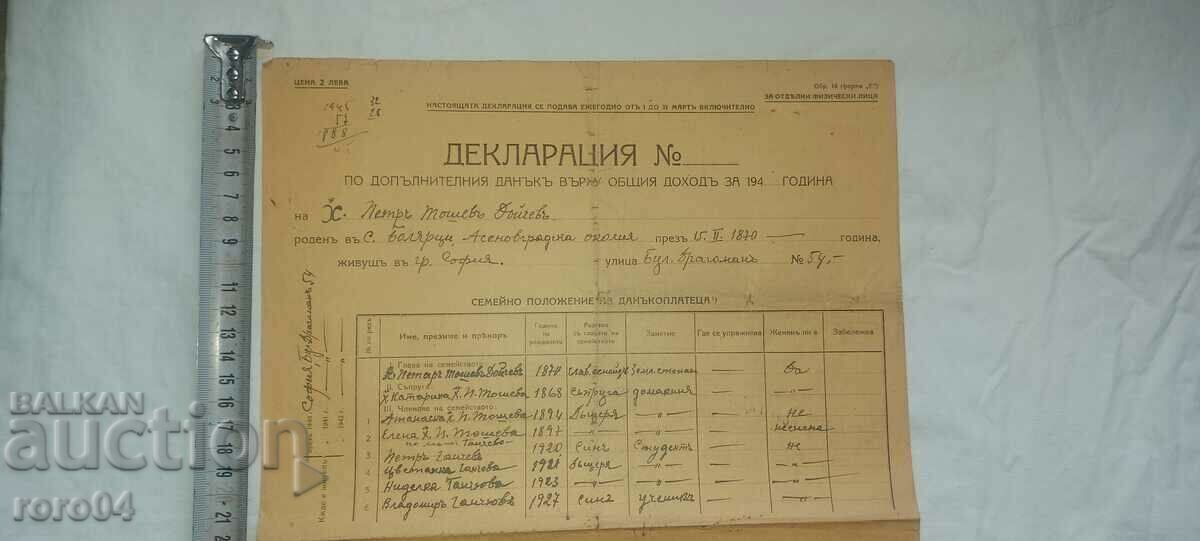 ЦЕНА 2 ЛЕВА
Обр. 16 (форма „Е“)
ЗА ОТДѢЛНИ ФИЗИЧЕСКИ ЛИЦА
НАСТОЯЩАТА ДЕКЛАРАЦИЯ СЕ ПОДАВА ЕЖЕГОДНО ОТЪ 1 ДО 31 МАРТЪ ВКЛЮЧИТЕЛНО
1945 32
57 28
1888
ДЕКЛАРАЦИЯ №
ПО ДОПЪЛНИТЕЛНИЯ ДАНЪКЪ ВЪРХУ ОБЩИЯ ДОХОДЪ ЗА 194 ГОДИНА
на Х. Петръ Тошевъ Дойчевъ
роденъ въ с. Болярци Асеновградска околия презъ 15. II. 1870 — година,
живущъ въ гр. София. - улица Бул. Драгоманъ № 54,-
СЕМЕЙНО ПОЛОЖЕНИЕ НА ДАНЪКОПЛАТЕЦА¹)
Име, презиме и прѣкоръ Година на раждането Родство съ главата на семейството Занятие Где се упражнява Жененъ ли е Забележка
I. Глава на семейството:
Х Петъръ Тошевъ Дойчевъ 1870 Глав. семейст. Земл. стопан. — Да
II. Съпруга:
Х. Катарина Х. П. Тошева 1868 Съпруга домакиня — „
III. Членове на семейството:
1 Атанаска Х. П. Тошева 1894 Дъщеря „ — не
2 Елена Х. П. Тошева 1897 „ „ —
3 Петръ Ганчевъ 1920 Синъ Студентъ — не
Цветанка Ганчева 1921 дъщеря „ — „
5 Неделка Ганчова 1923 „ „ — „
6 Владомиръ Ганчовъ 1927 Синъ ученикъ — „
София Бул. Драгоманъ 54
1941 г. „
1942 г. „
BALKAN
auction
roro04
3
4
5
6
7
8
9
10
11
12
13
14
15
16
17
18
19
20
21